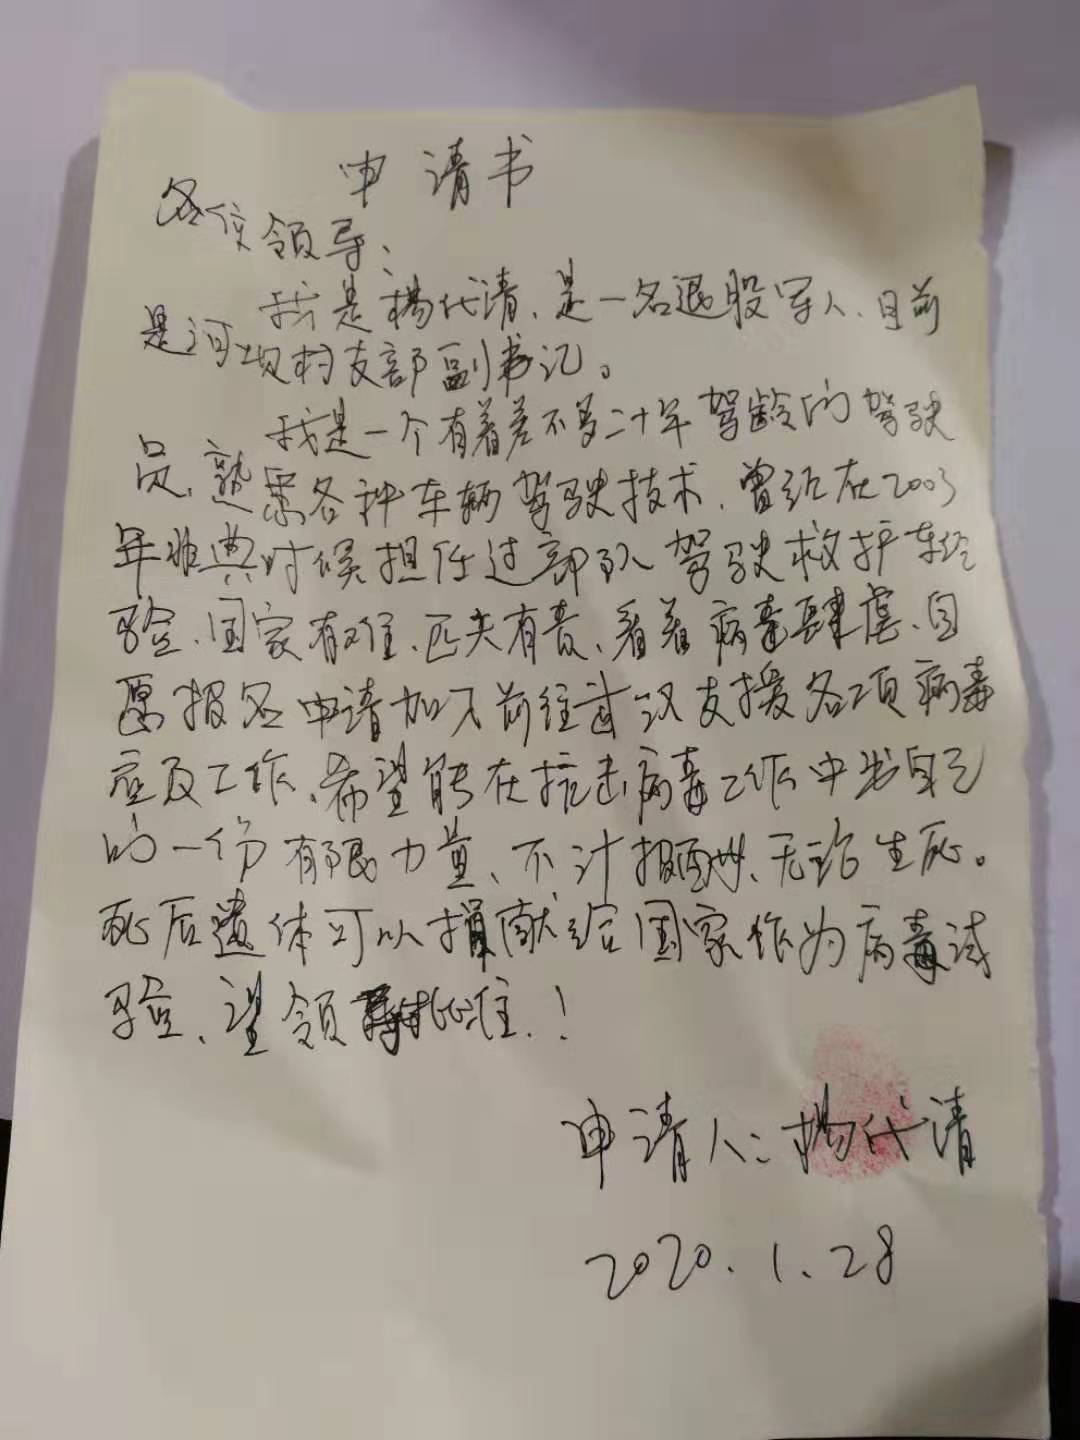 申请书
各位领导：
我是杨代清、是一名退股军人、目前
是河坝村支部副书记。
我是一个有着差不多二十年驾龄的驾驶
员、熟悉各种车辆驾驶技术、曾经在2003
年非典时候担任过部队驾驶救护车经
验、国家有难、匹夫有责、看着病毒肆虐、自
愿报名申请加入前往武汉支援各项病毒
应及工作、希望能在抗击病毒工作中出自己
的一份有限力量、不计报酬、无论生死。
死后遗体可以捐献给国家作为病毒试
验、望领导批准！
申请人：杨代清
2020.1.28